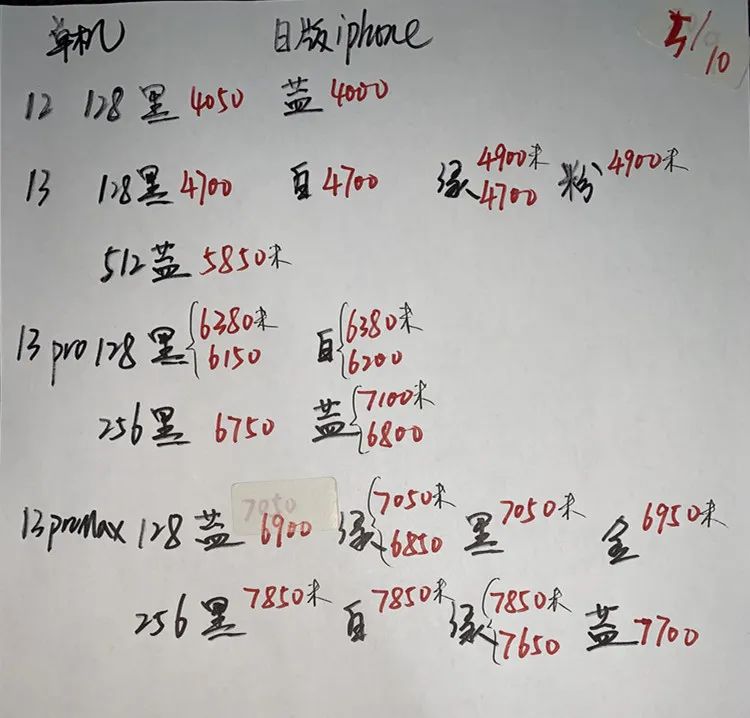 单机 日版iphone 5/10
12 128黑4050 蓝4000
13 128黑4700 白4700 绿4900未 4700 粉4900未
512蓝5850未
13pro128黑6380未 6150 白6380未 6200
256黑 6750 蓝7100未 6800
13proMax 128蓝 6900 绿7050未 6850 黑7050未 金6950未
256黑7850未 白7850未 绿7850未 7650 蓝7700